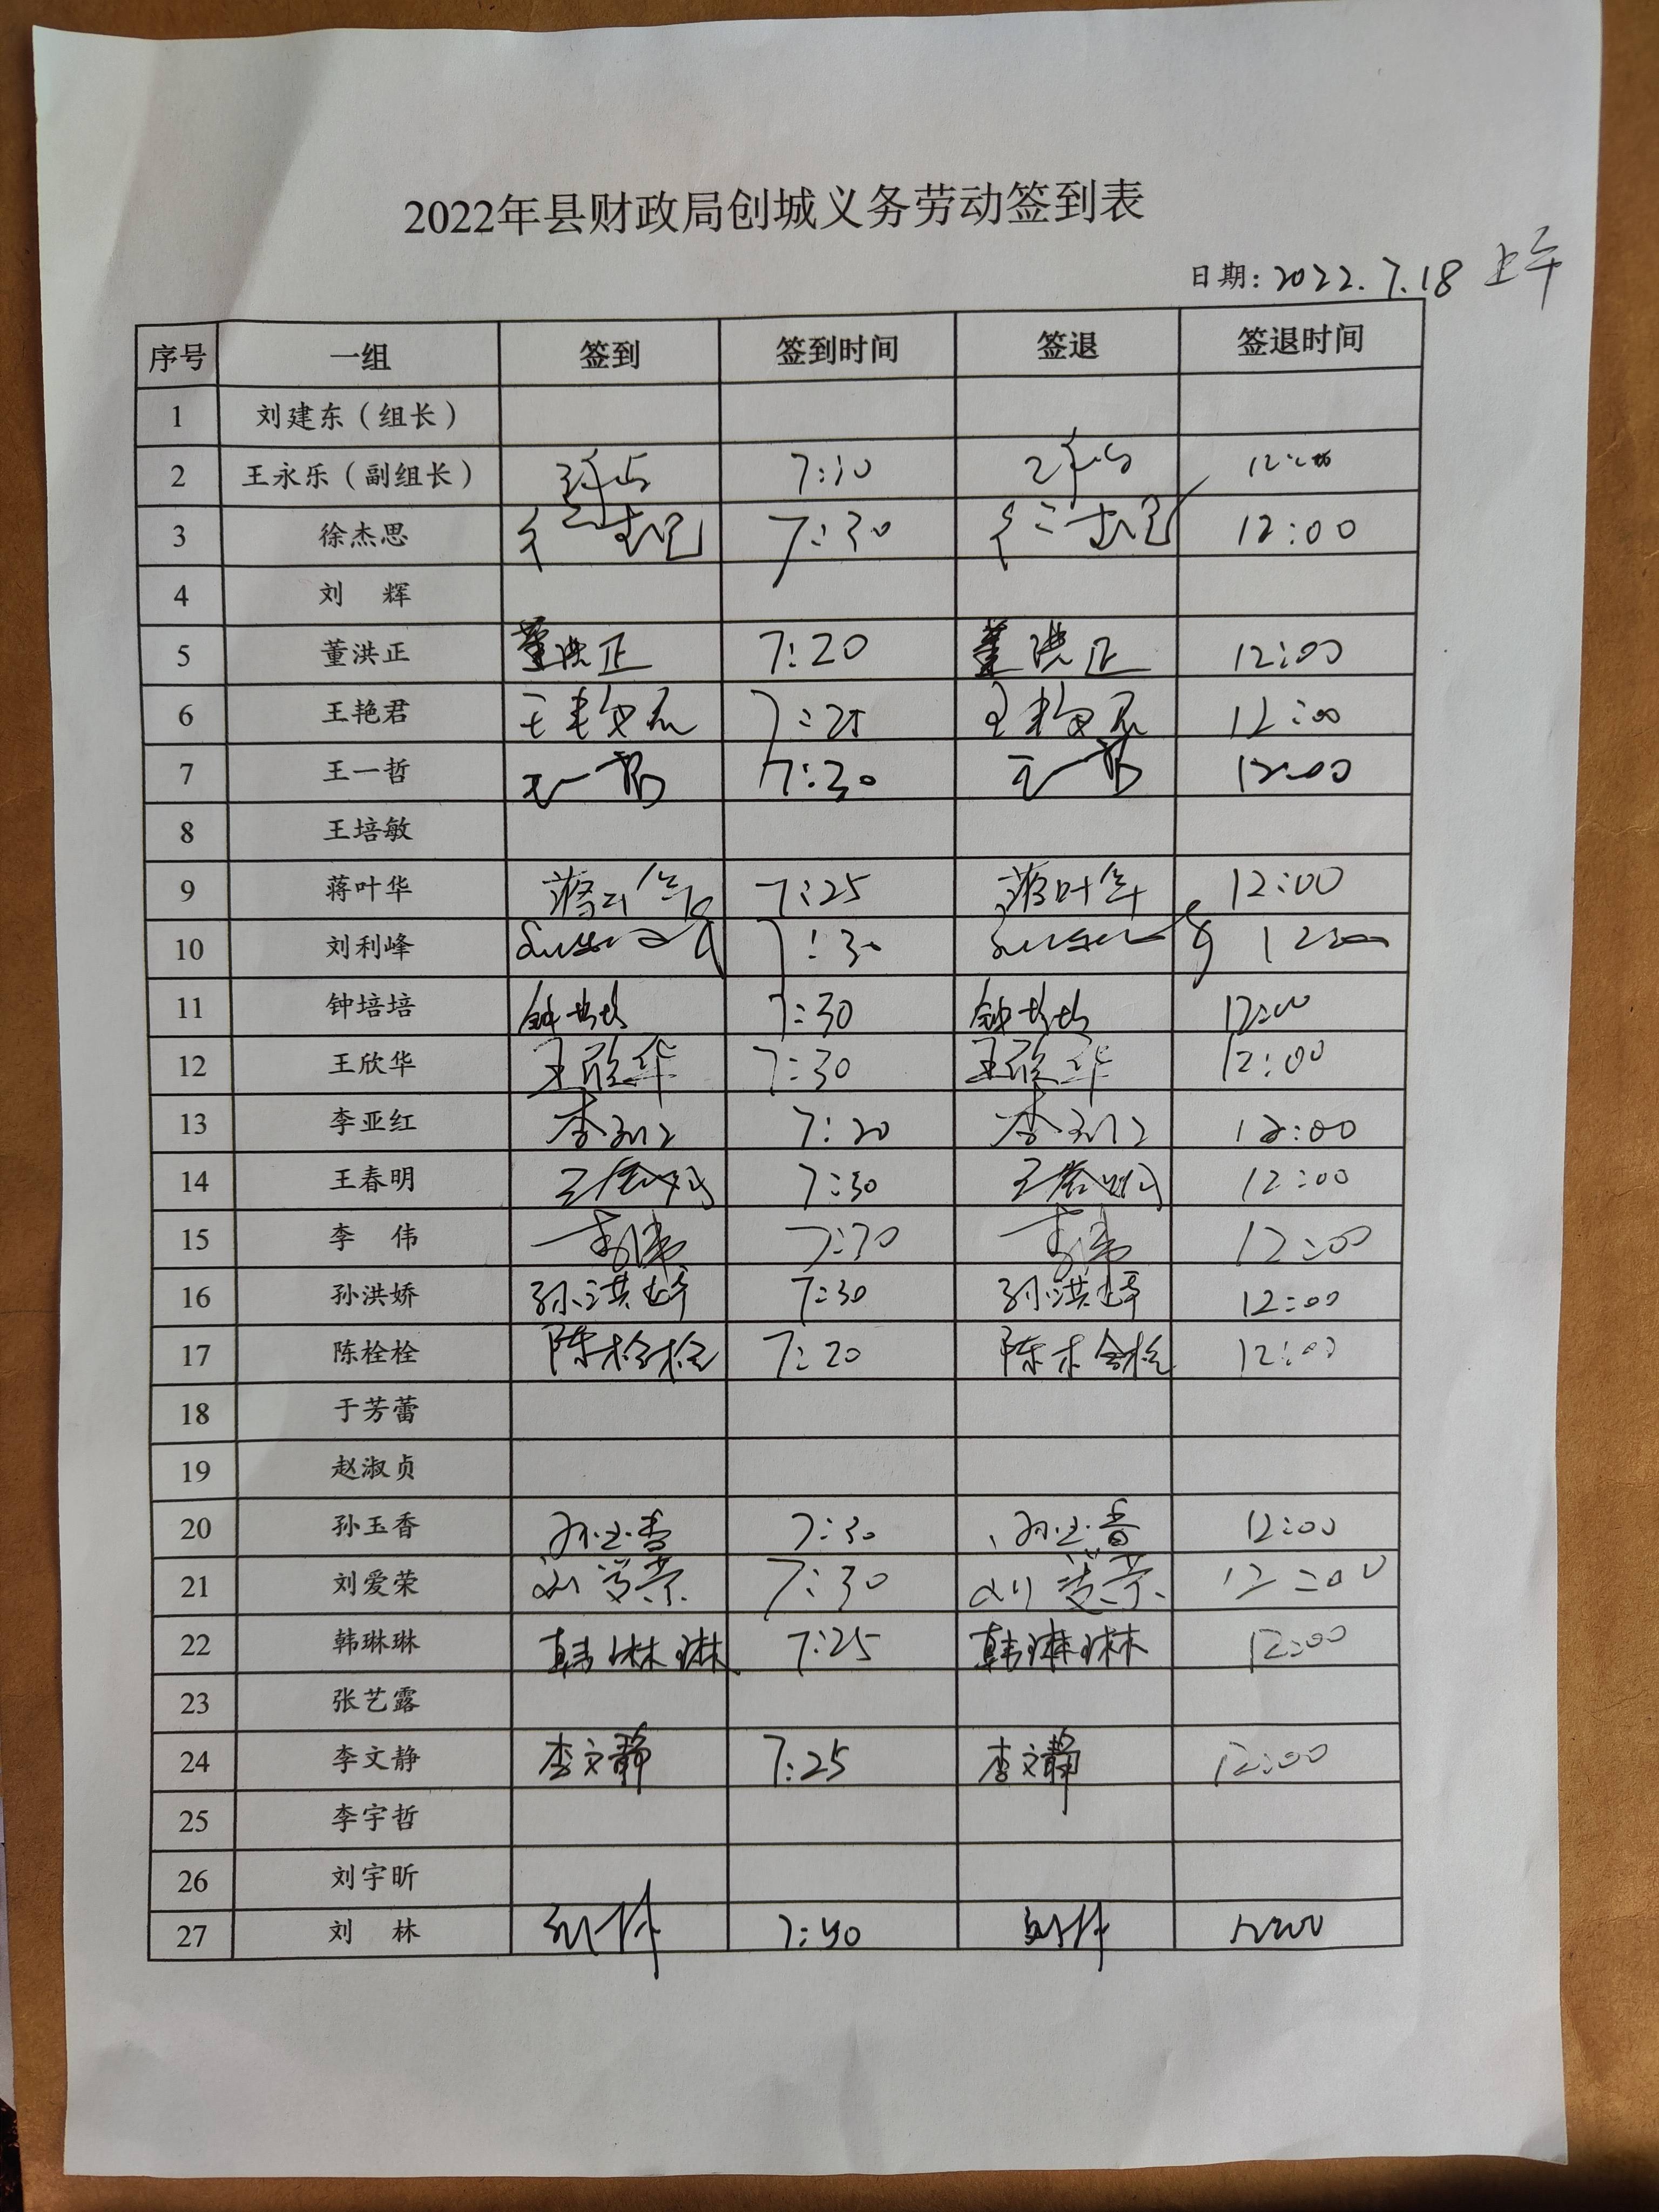 2022年县财政局创城义务劳动签到表
日期: 2022.7.18 上午
序号 一组 签到 签到时间 签退 签退时间
1 刘建东（组长）
2 王永乐（副组长） 12:00
3 徐杰思 7:30 12:00
4 刘 辉
5 董洪正 董洪正 7:20 董洪正 12:00
6 王艳君 王艳君 7:25 王艳君 12:00
7 王一哲 王一哲 7:30 王一哲 12:00
8 王培敏
9 蒋叶华 蒋叶华 7:25 蒋叶华 12:00
10 刘利峰 7:30 12:00
11 钟培培 钟培培 7:30 钟培培 12:00
12 王欣华 王欣华 7:30 王欣华 12:00
13 李亚红 李亚红 7:20 李亚红 12:00
14 王春明 王春明 7:30 王春明 12:00
15 李 伟 李伟 7:30 李伟 12:00
16 孙洪娇 孙洪娇 7:30 孙洪娇 12:00
17 陈栓栓 陈栓栓 7:20 陈栓栓 12:00
18 于芳蕾
19 赵淑贞
20 孙玉香 孙玉香 7:30 孙玉香 12:00
21 刘爱荣 刘爱荣 7:30 刘爱荣 12:00
22 韩琳琳 韩琳琳 7:25 韩琳琳 12:00
23 张艺露
24 李文静 李文静 7:25 李文静 12:00
25 李宇哲
26 刘宇昕
27 刘 林 刘林 刘林 12:00